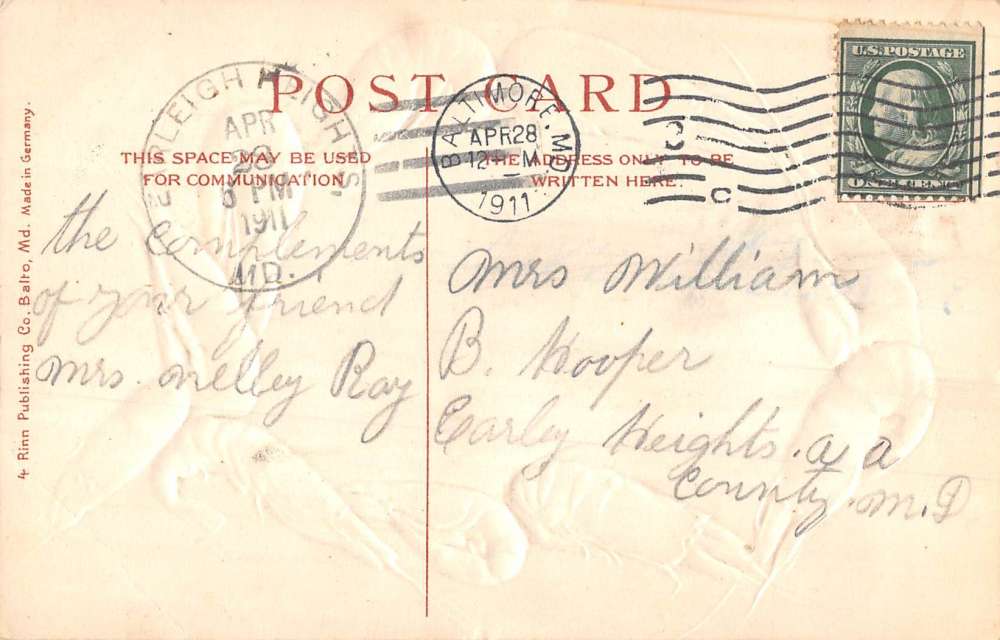 POST CARD
THIS SPACE MAY BE USED
FOR COMMUNICATION
THE ADDRESS ONLY TO BE
WRITTEN HERE.
EARLEIGH HEIGHTS,
APR
28
PM
1911
MD.
BALTIMORE, MD.
APR 28
12 - M
1911
U.S. POSTAGE
ONE CENT
C
the complements
of your friend
Mrs. Nelley Ray
Mrs William
B. Hooper
Earley Heights. a a
County. M.D
4 Rinn Publishing Co. Balto, Md. Made in Germany.